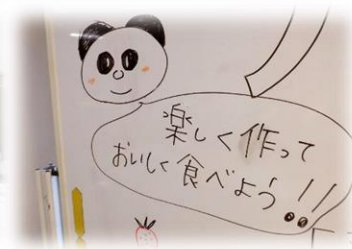 楽しく作って
おいしく食べよう!!